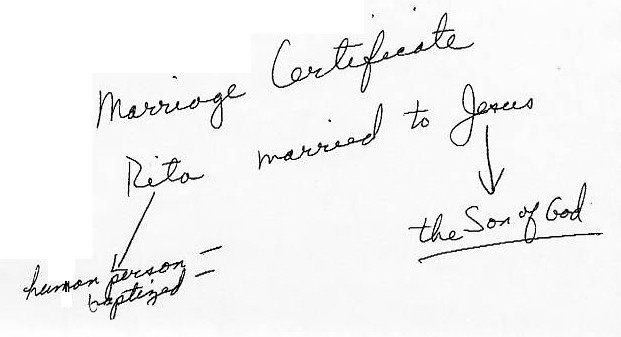 Marriage Certificate
Rita married to Jesus
the Son of God
human person =
baptized